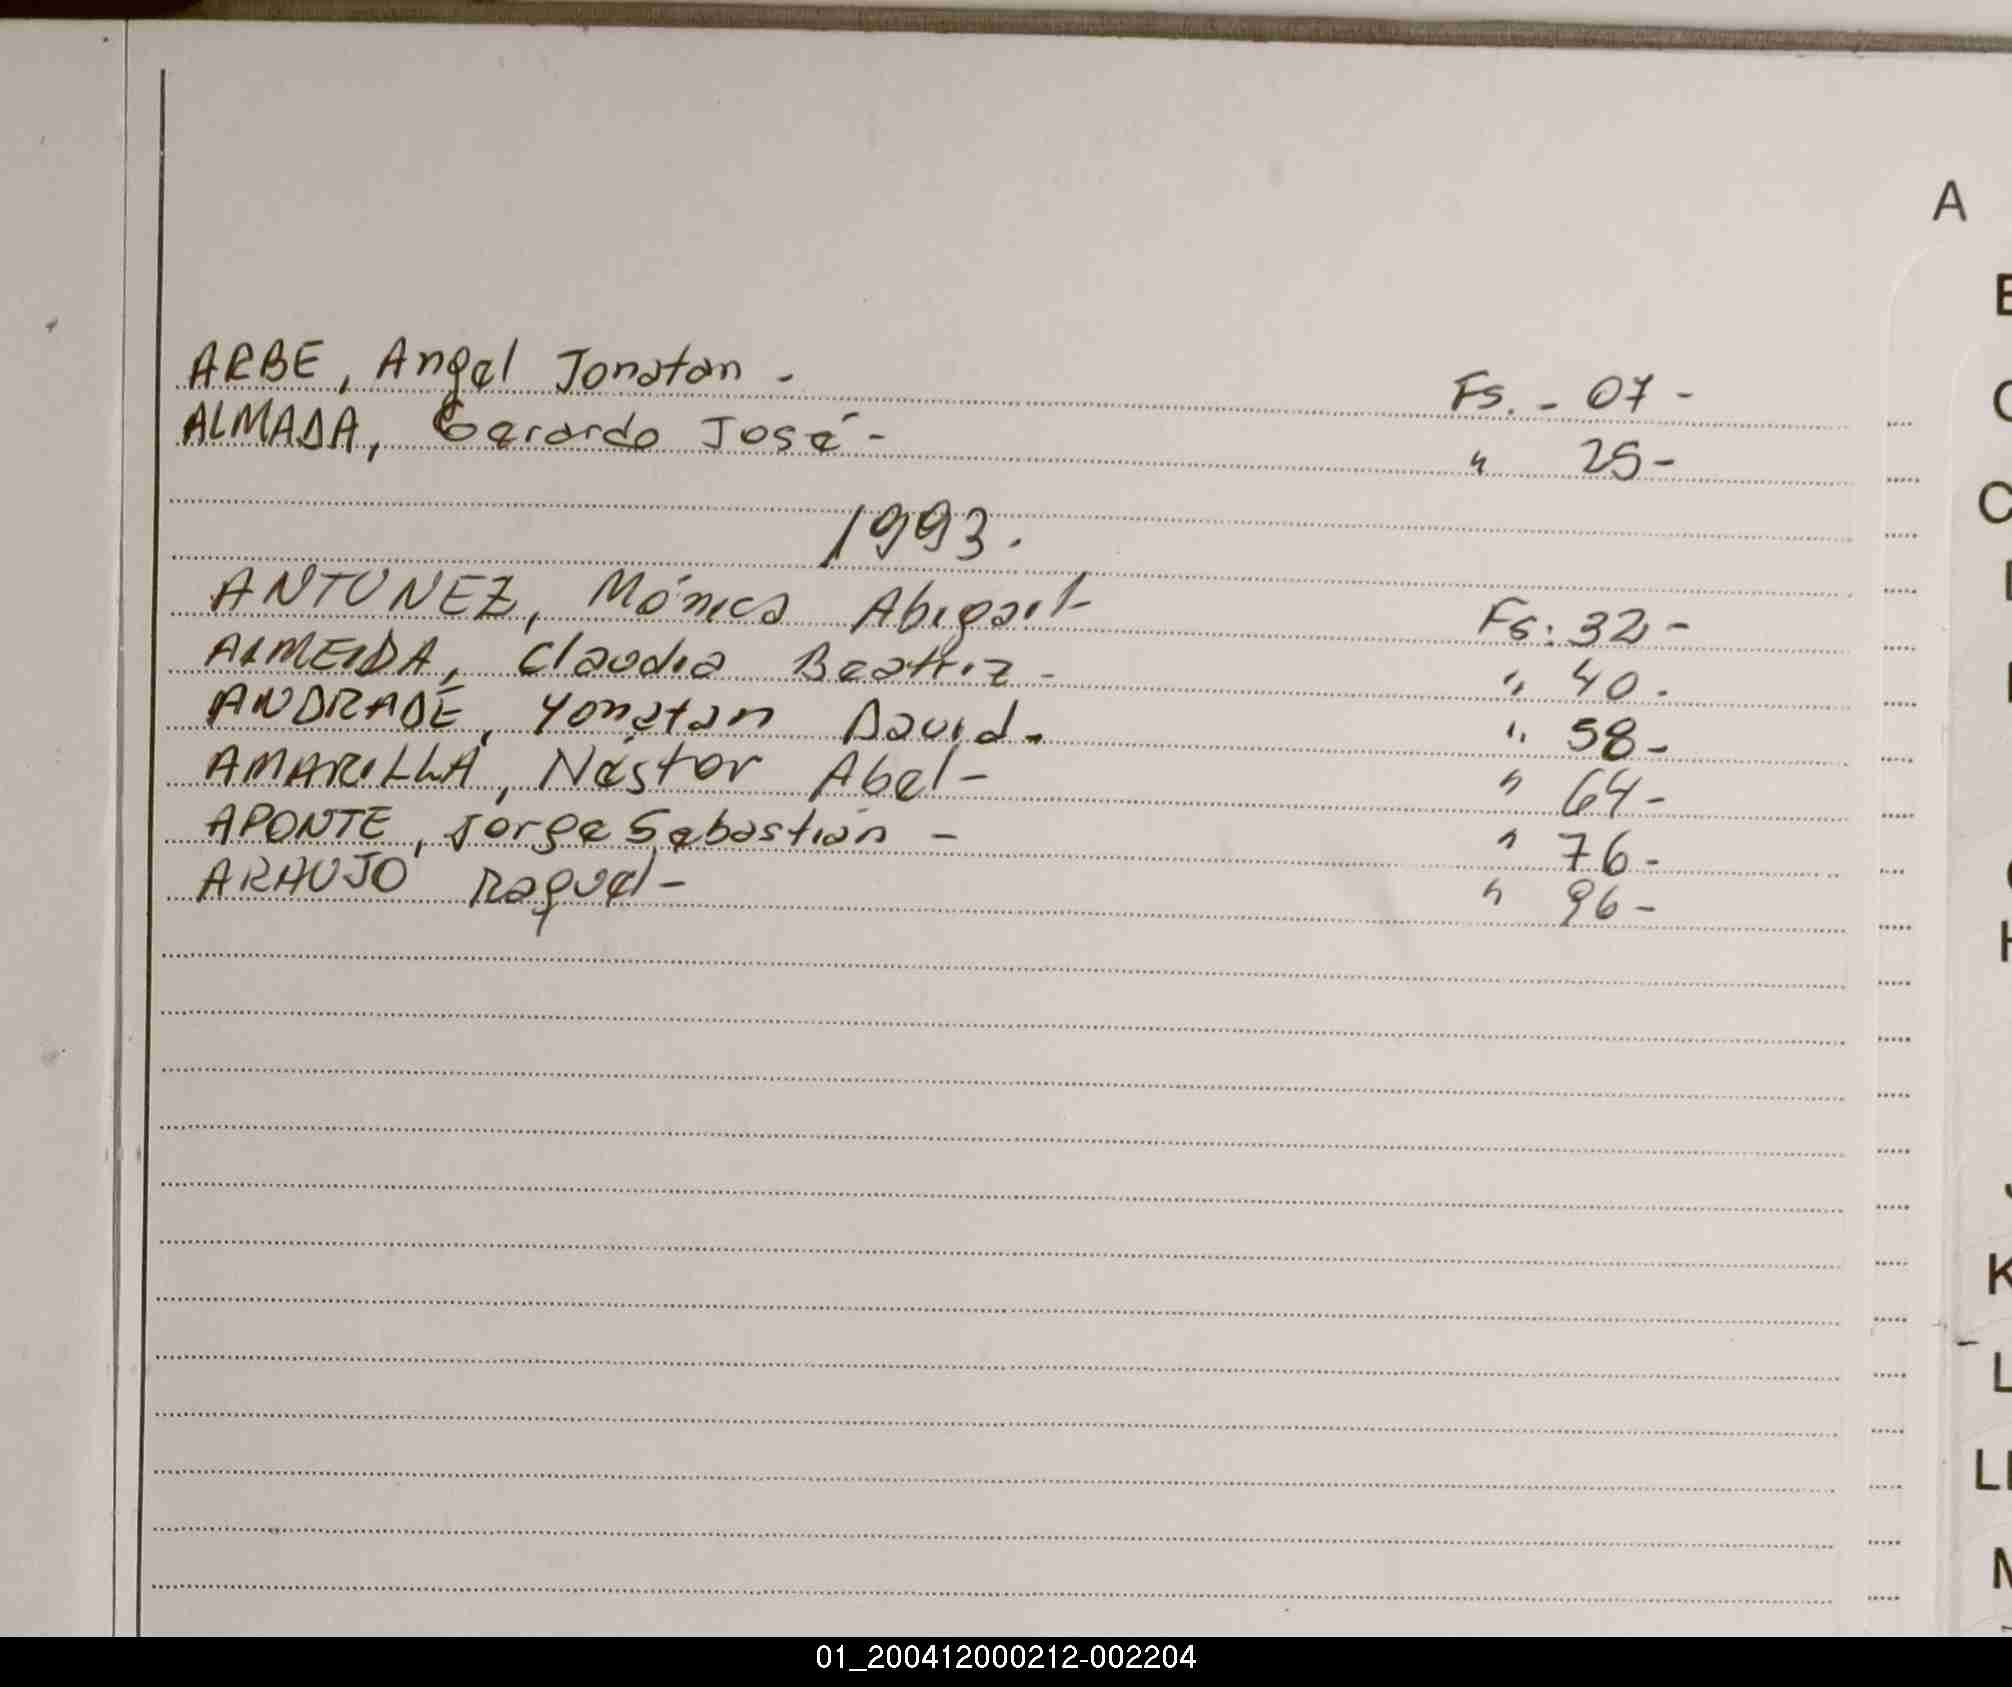 A
ARBE, Angel Jonatan - Fs. - 07 -
ALMADA, Gerardo José - " 25 -
1993.
ANTUNEZ, Mónica Abigail - Fs: 32 -
ALMEIDA, Claudia Beatriz - " 40 -
ANDRADE, Yonatan David. " 58 -
AMARILLA, Néstor Abel - " 64 -
APONTE, Jorge Sebastián - " 76 -
ARAUJO Raquel - " 96 -
K
L
M
01_200412000212-002204